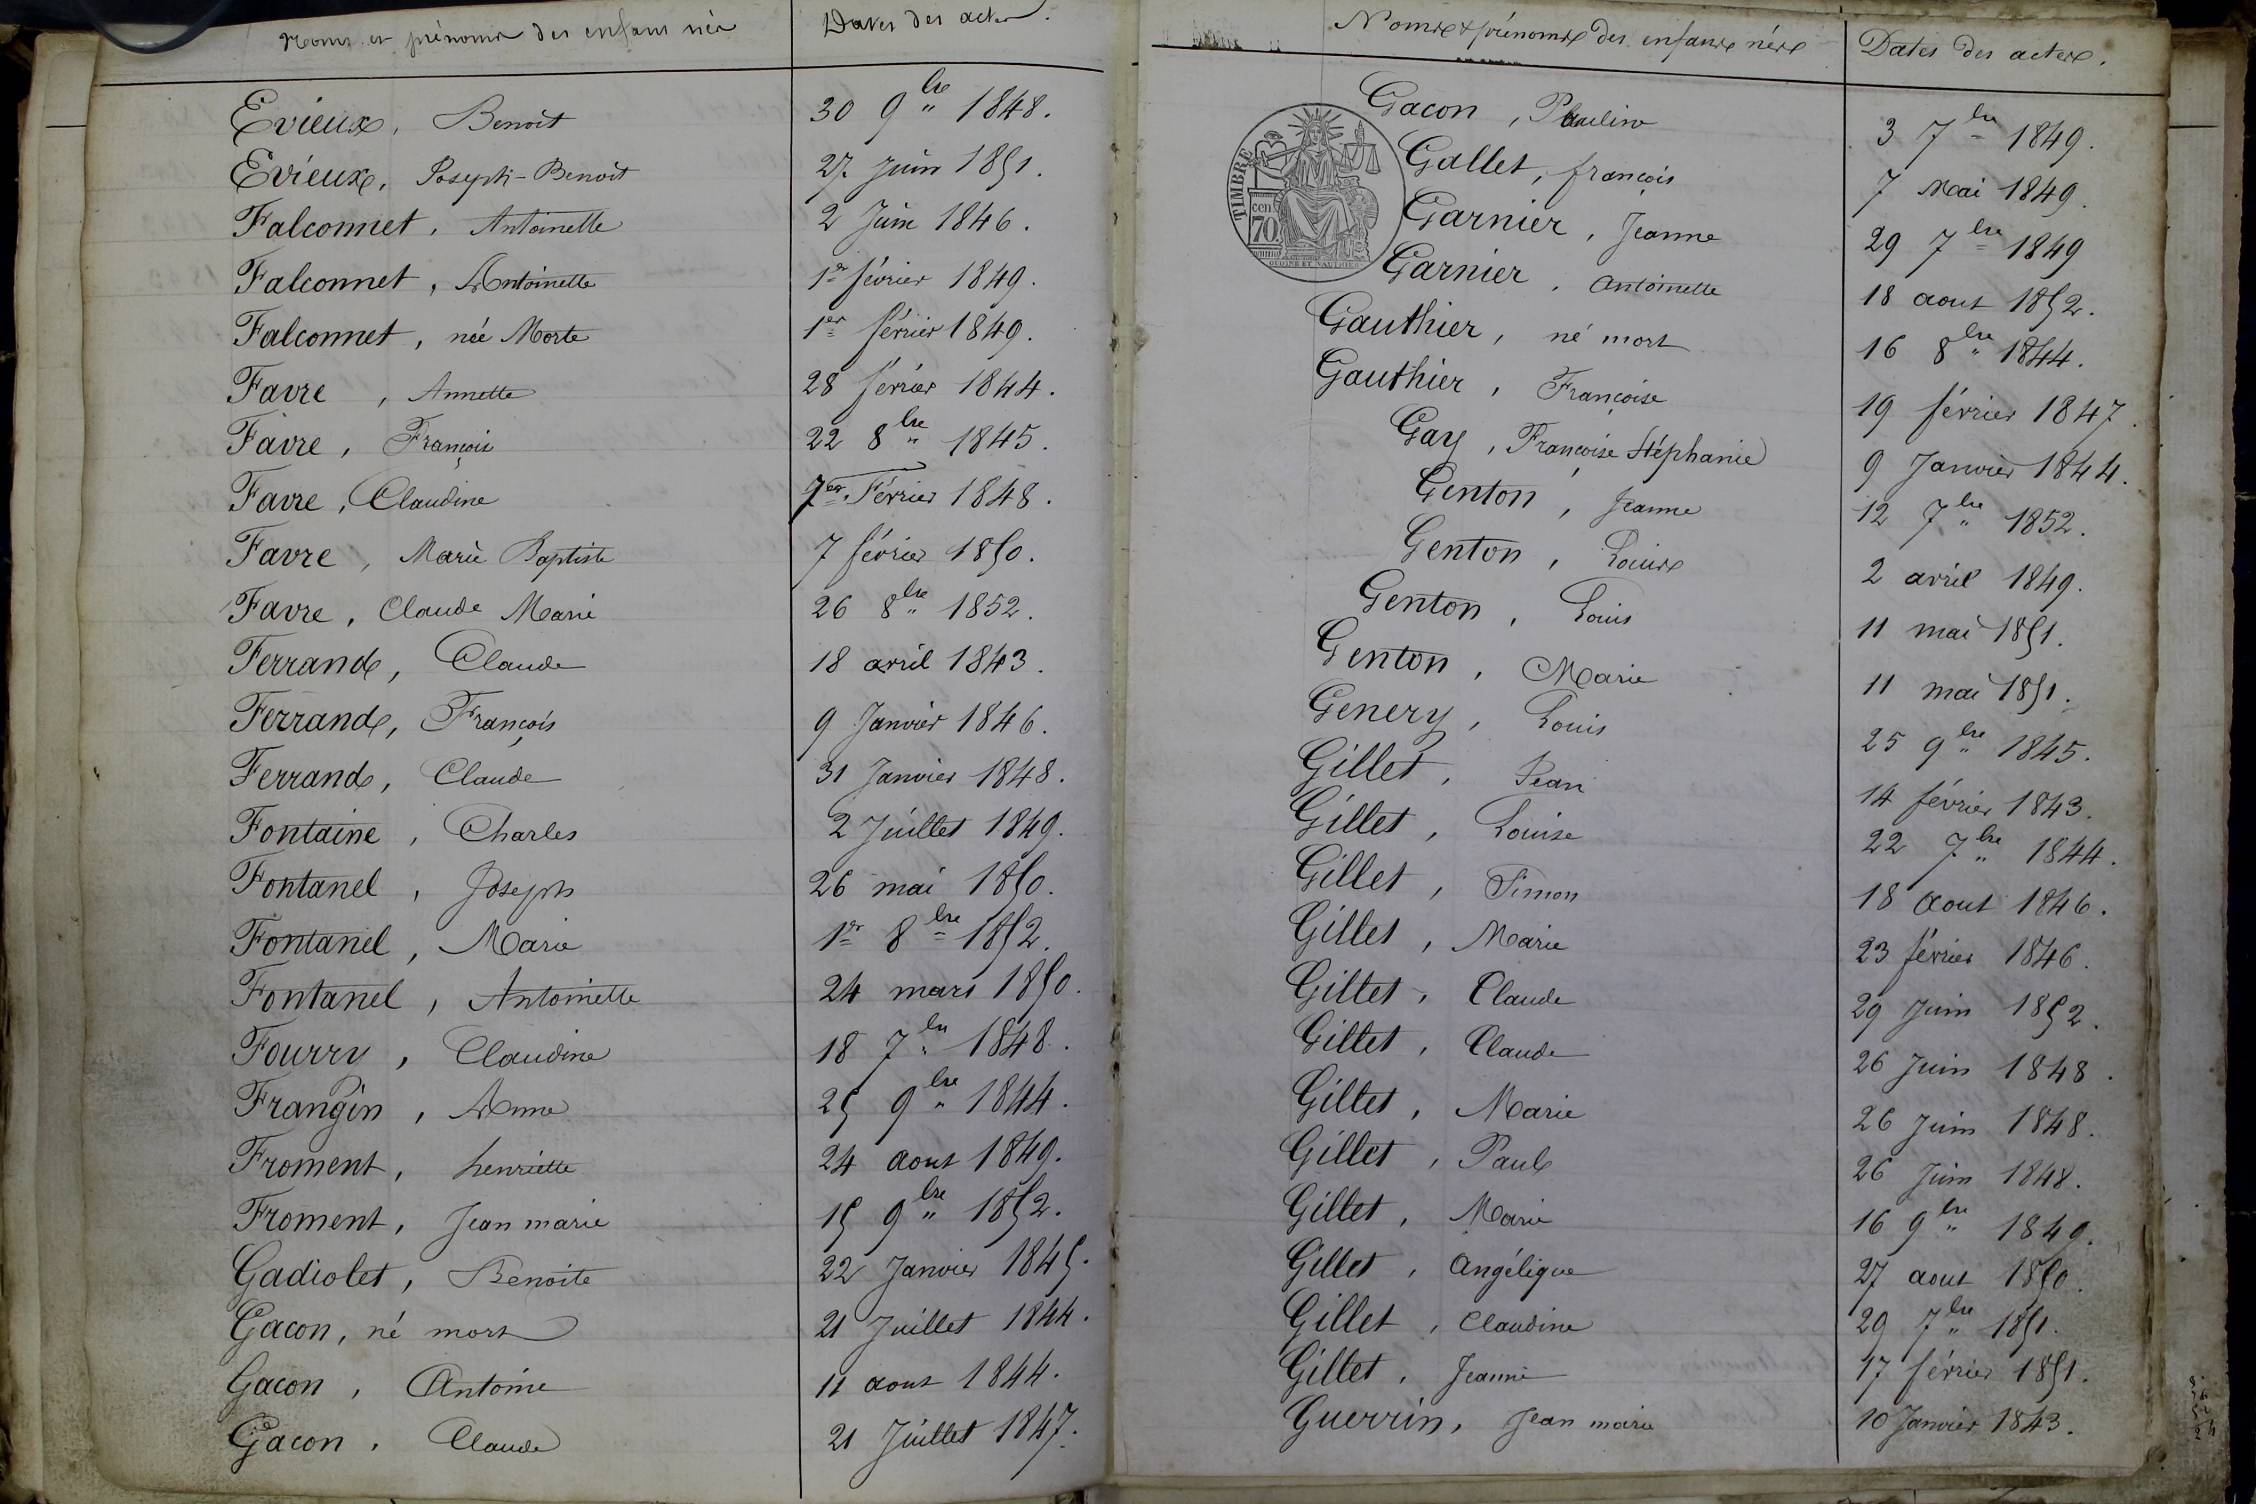 Noms et prénoms des enfans nés Dates des actes.
Evieux, Benoit 30 9bre 1848.
Evieux, Joseph-Benoit 27 Juin 1851.
Falconnet, Antoinette 2 Juin 1846.
Falconnet, Antoinette 1er février 1849.
Falconnet, née Morte 1er février 1849.
Favre, Annette 28 février 1844.
Favre, François 22 8bre 1845.
Favre, Claudine Février 1848.
Favre, Marie Baptiste 7 février 1850.
Favre, Claude Marie 26 8bre 1852.
Ferrand, Claude 18 avril 1843.
Ferrand, François 9 Janvier 1846.
Ferrand, Claude 31 Janvier 1848.
Fontaine, Charles 2 Juillet 1849.
Fontanel, Joseph 26 mai 1850.
Fontanel, Marie 1er 8bre 1852.
Fontanel, Antoinette 24 mars 1850.
Fourry, Claudine 18 7bre 1848.
Frangin, Anne 25 9bre 1844.
Froment, henriette 24 aout 1849.
Froment, Jean marie 15 9bre 1852.
Gadiolet, Benoite 22 Janvier 1845.
Gacon, né mort 21 Juillet 1844.
Gacon, Antoine 11 aout 1844.
Gacon, Claude 21 Juillet 1847.
Noms & prénoms des enfans nés Dates des actes.
TIMBRE
cen
70
Gacon, Pauline 3 7bre 1849.
Gallet, françois 7 Mai 1849.
Garnier, Jeanne 29 7bre 1849
Garnier, Antoinette 18 aout 1852.
Gauthier, né mort 16 8bre 1844.
Gauthier, Françoise 19 février 1847.
Gay, Françoise Stéphanie 9 Janvier 1844.
Genton, Jeanne 12 7bre 1852.
Genton, Louise 2 avril 1849.
Genton, Louis 11 mai 1851.
Genton, Marie 11 mai 1851.
Genery, Louis 25 9bre 1845.
Gillet, Jean 14 février 1843.
Gillet, Louise 22 7bre 1844.
Gillet, Simon 18 aout 1846.
Gillet, Marie 23 février 1846.
Gillet, Claude 29 Juin 1852.
Gillet, Claude 26 Juin 1848.
Gillet, Marie 26 Juin 1848.
Gillet, Paul 26 Juin 1848.
Gillet, Marie 16 9bre 1849.
Gillet, Angélique 27 aout 1850.
Gillet, Claudine 29 7bre 1851.
Gillet, Jeanne 17 février 1851.
Guerrin, Jean marie 10 Janvier 1843.